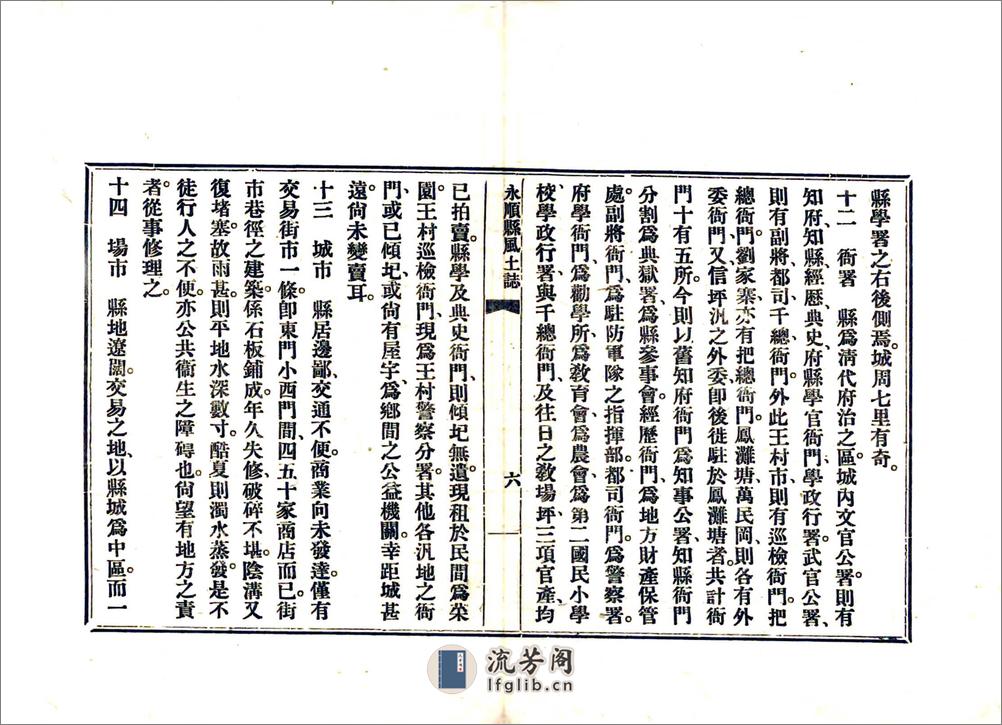 縣學署之右後側焉。城周七里有奇。
十二　衙署　縣爲清代府治之區、城內文官公署、則有
知府、知縣、經歷、典史、府縣學官衙門、學政行署、武官公署、
則有副將、都司、千總衙門。外此王村市則有巡檢衙門。把
總衙門。劉家寨亦有把總衙門。鳳灘塘、萬民岡、則各有外
委衙門。又信坪汛之外委、卽後徙駐於鳳灘塘者。共計衙
門十有五所。今則以舊知府衙門爲知事公署、知縣衙門
分割爲典獄署、爲縣參事會。經歷衙門、爲地方財產保管
處、副將衙門、爲駐防軍隊之指揮部。都司衙門。爲警察署。
府學衙門、爲勸學所、爲敎育會、爲農會、爲第二國民小學
校、學政行署、與千總衙門、及往日之敎場坪三項官產、均
永順縣風土誌　六
已拍賣。縣學及典史衙門、則傾圮無遺。現租於民間爲菜
園。王村巡檢衙門、現爲王村警察分署。其他各汛地之衙
門、或已傾圮、或尙有屋宇、爲鄉間之公益機關。幸距城甚
遠、尙未變賣耳。
十三　城市　縣居邊鄙、交通不便。商業向未發達。僅有
交易街市一條。卽東門小西門間、四五十家商店而已。街
市巷徑之建築。係石板鋪成。年久失修、破碎不堪。陰溝又
復堵塞。故雨甚。則平地水深數寸。酷夏則濁水蒸發。是不
徒行人之不便。亦公共衞生之障碍也。尙望有地方之責
者。從事修理之。
十四　場市　縣地遼闊。交易之地、以縣城爲中區。而一
流芳阁
lfglib.cn